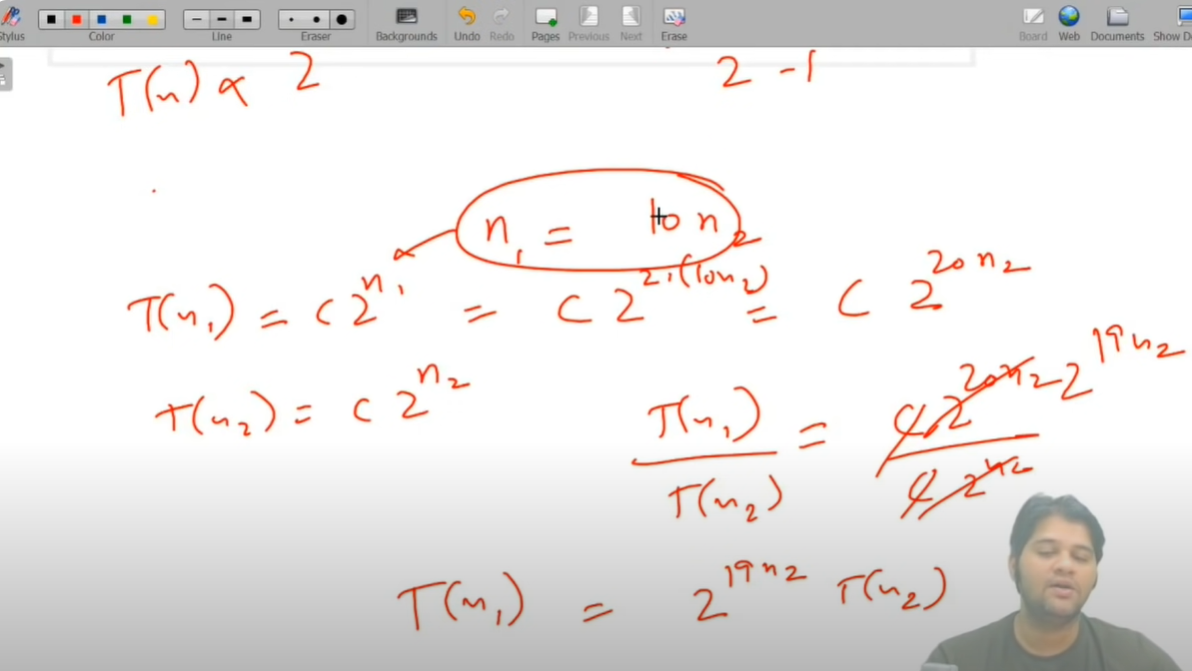 Stylus Color Line Eraser Backgrounds Undo Redo Pages Previous Next Erase Board Web Documents Show De
T(n) ∝ 2
2 -1
n₁ = 10 n₂
T(n₁) = C 2^n₁ = C 2^2.(10n₂) = C 2^20n₂
T(n₂) = C 2^n₂
T(n₁)/T(n₂) = C.2^20n₂/C 2^n₂ 2^19n₂
T(n₁) = 2^19n₂ T(n₂)